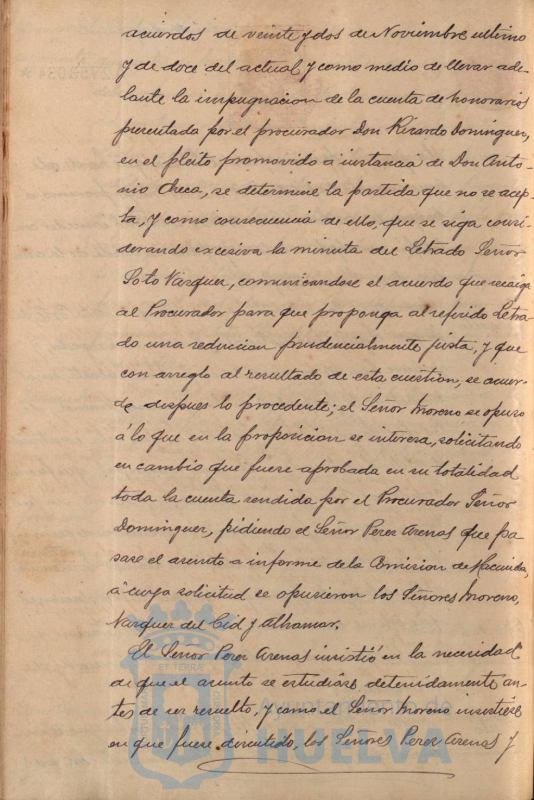 acuerdos de veinte y dos de Noviembre ultimo
y de doce del actual y como medio de llevar ade-
lante la impugnacion de la cuenta de honorarios
presentada por el procurador Don Ricardo Dominguez,
en el pleito promovido á instancia de Don Anto-
nio Checa, se determine la partida que no se acep-
ta, y como consecuencia de ello, que se siga consi-
derando excesiva la minuta del Letrado Señor
Soto Vazquez, comunicandose el acuerdo que recaiga
al Procurador para que proponga al referido Letra-
do una reducion prudencialmente justa, y que
con arreglo al resultado de esta cuestion, se acuer-
de despues lo procedente; el Señor Moreno se opuso
á lo que en la proposicion se interesa, solicitando
en cambio que fuere aprobada en su totalidad
toda la cuenta rendida por el Procurador Señor
Dominguez, pidiendo el Señor Perez Arenas que pa-
sase el asunto a informe de la Comision de Hacienda,
á cuya solicitud se opusieron los Señores Moreno,
Vazquez del Cid y Alhamar.
El Señor Perez Arenas insistió en la necesidad
de que el asunto se estudiase detenidamente an-
tes de ser resuelto, y como el Señor Moreno insistiese
en que fuere discutido, los Señores Perez Arenas y
ET TERRAE
Ayuntamiento de
HUELVA